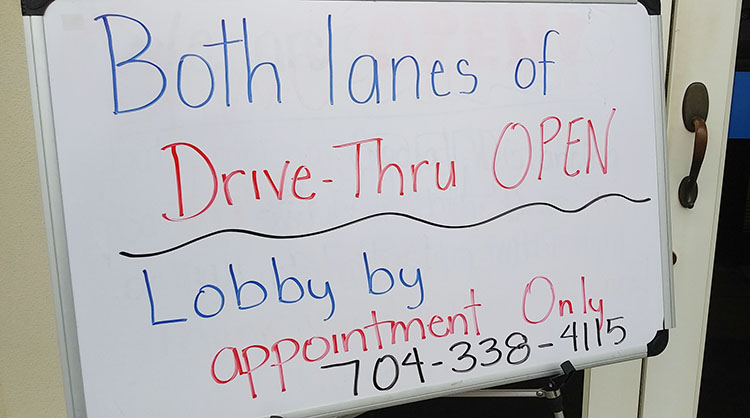 Both lanes of
Drive-Thru OPEN
Lobby by
appointment Only
704-338-4115